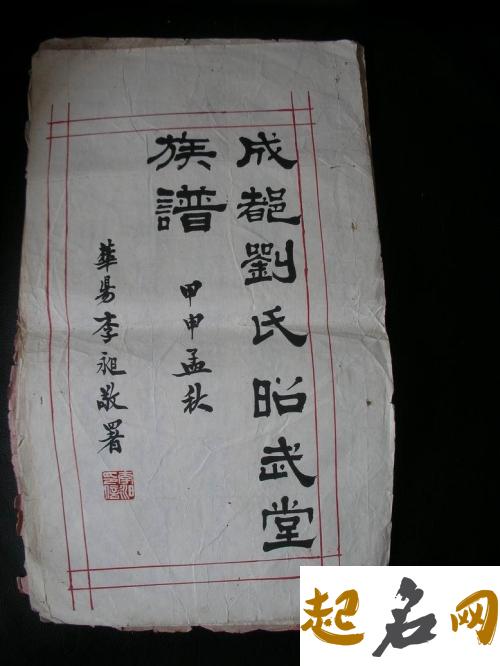 成都劉氏昭武堂
族譜
甲申孟秋
華昜李昶敬署
起名网